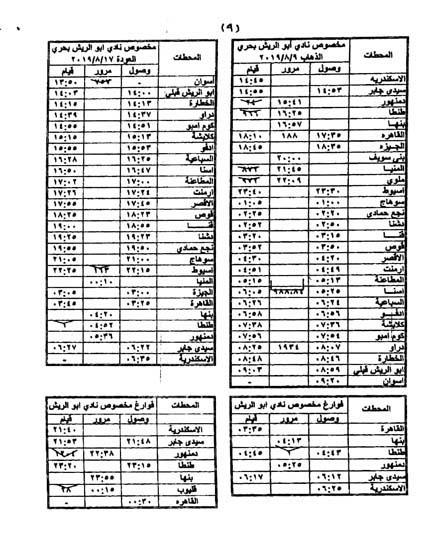 (٩)
مخصوص نادي أبو الريش بحري
الذهاب ٢٠١٩/٨/٩
المحطات وصول مرور قيام
الاسكندريه ١٤:٤٥
سيدي جابر ١٤:٥٣ ١٤:٥٥
دمنهور ١٥:٤١
طنطا ١٦:٢٥
بنها ١٦:٥٧
القاهره ١٧:٣٥ ١٨٨ ١٨:١٠
الجيزه ١٨:٣٥ ١٨:٤٥
بني سويف ٢٠:٠٠
المنيا ٢١:٤٥
ملوي ٢٢:٠٩
اسيوط ٢٣:٣٠ ٢٣:٤٠
سوهاج ٠١:٠٠ ٠١:٠٥
نجع حمادي ٠٢:٢٠ ٠٢:٢٥
دشنا ٠٢:٥٠ ٠٢:٥٢
قنا ٠٣:١٥ ٠٣:٢٠
قوص ٠٣:٥٠ ٠٣:٥٢
الأقصر ٠٤:٢٠ ٠٤:٣٠
ارمنت ٠٤:٤٩ ٠٤:٥١
المطاعنة ٠٥:١٣ ٠٥:١٥
اسنا ٠٥:٢٥
السباعية ٠٦:٢٤ ٠٦:٢٦
ادفو ٠٦:٥٦ ٠٦:٥٨
كلابشة ٠٧:٣٦ ٠٧:٣٨
كوم امبو ٠٧:٥٤ ٠٧:٥٦
دراو ٠٨:٠٧ ١٩٣٤ ٠٨:٢٥
الخطارة ٠٨:٤٦ ٠٨:٤٨
ابو الريش قبلي ٠٨:٥٩ ٠٩:٠٣
أسوان ٠٩:٢٠ -
مخصوص نادي أبو الريش بحري
العودة ٢٠١٩/٨/١٧
المحطات وصول مرور قيام
أسوان - ١٣:٥٠
ابو الريش قبلي ١٤:٠٠ ١٤:٠٣
الخطارة ١٤:١٣ ١٤:١٥
دراو ١٤:٣٧ ١٤:٣٩
كوم امبو ١٤:٥١ ١٤:٥٥
كلابشة ١٥:١٣ ١٥:١٥
ادفو ١٥:٥٣ ١٥:٥٥
السباعية ١٦:٢٥ ١٦:٢٨
اسنا ١٦:٤٧ ١٦:٥٠
المطاعنة ١٧:٠٠ ١٧:٠٢
ارمنت ١٧:٢٤ ١٧:٢٦
الأقصر ١٧:٤٥ ١٧:٥٥
قوص ١٨:٢٣ ١٨:٢٥
قنا ١٨:٥٥ ١٩:٠٠
دشنا ١٩:٢٣ ١٩:٢٥
نجع حمادي ١٩:٥٠ ١٩:٥٥
سوهاج ٢١:٠٠ ٢١:٠٥
اسيوط ٢٢:١٥ ٢٢:٢٥
المنيا ٠٠:١٠
الجيزة ٠٣:٠٠ ٠٣:٠٥
القاهرة ٠٣:٢٥ ٠٣:٤٥
بنها ٠٤:٢٠
طنطا ٠٤:٥٢
دمنهور ٠٥:٣٦
سيدي جابر ٠٦:٢٢ ٠٦:٢٧
الاسكندرية ٠٦:٣٥ -
فوارغ مخصوص نادي أبو الريش
المحطات وصول مرور قيام
القاهرة ٠٣:٣٥
بنها ٠٤:١٣
طنطا ٠٤:٤٣ ٠٤:٤٥
دمنهور ٠٥:٢٥
سيدي جابر ٠٦:١٢ ٠٦:١٧
الاسكندرية ٠٦:٢٥
فوارغ مخصوص نادي أبو الريش
المحطات وصول مرور قيام
الاسكندرية ٢١:٤٠
سيدي جابر ٢١:٤٨ ٢١:٥٣
دمنهور ٢٢:٣٨
طنطا ٢٣:١٥ ٢٣:٢٠
بنها ٢٣:٥٥
قليوب ٠٠:١٥
القاهره ٠٠:٣٠ -